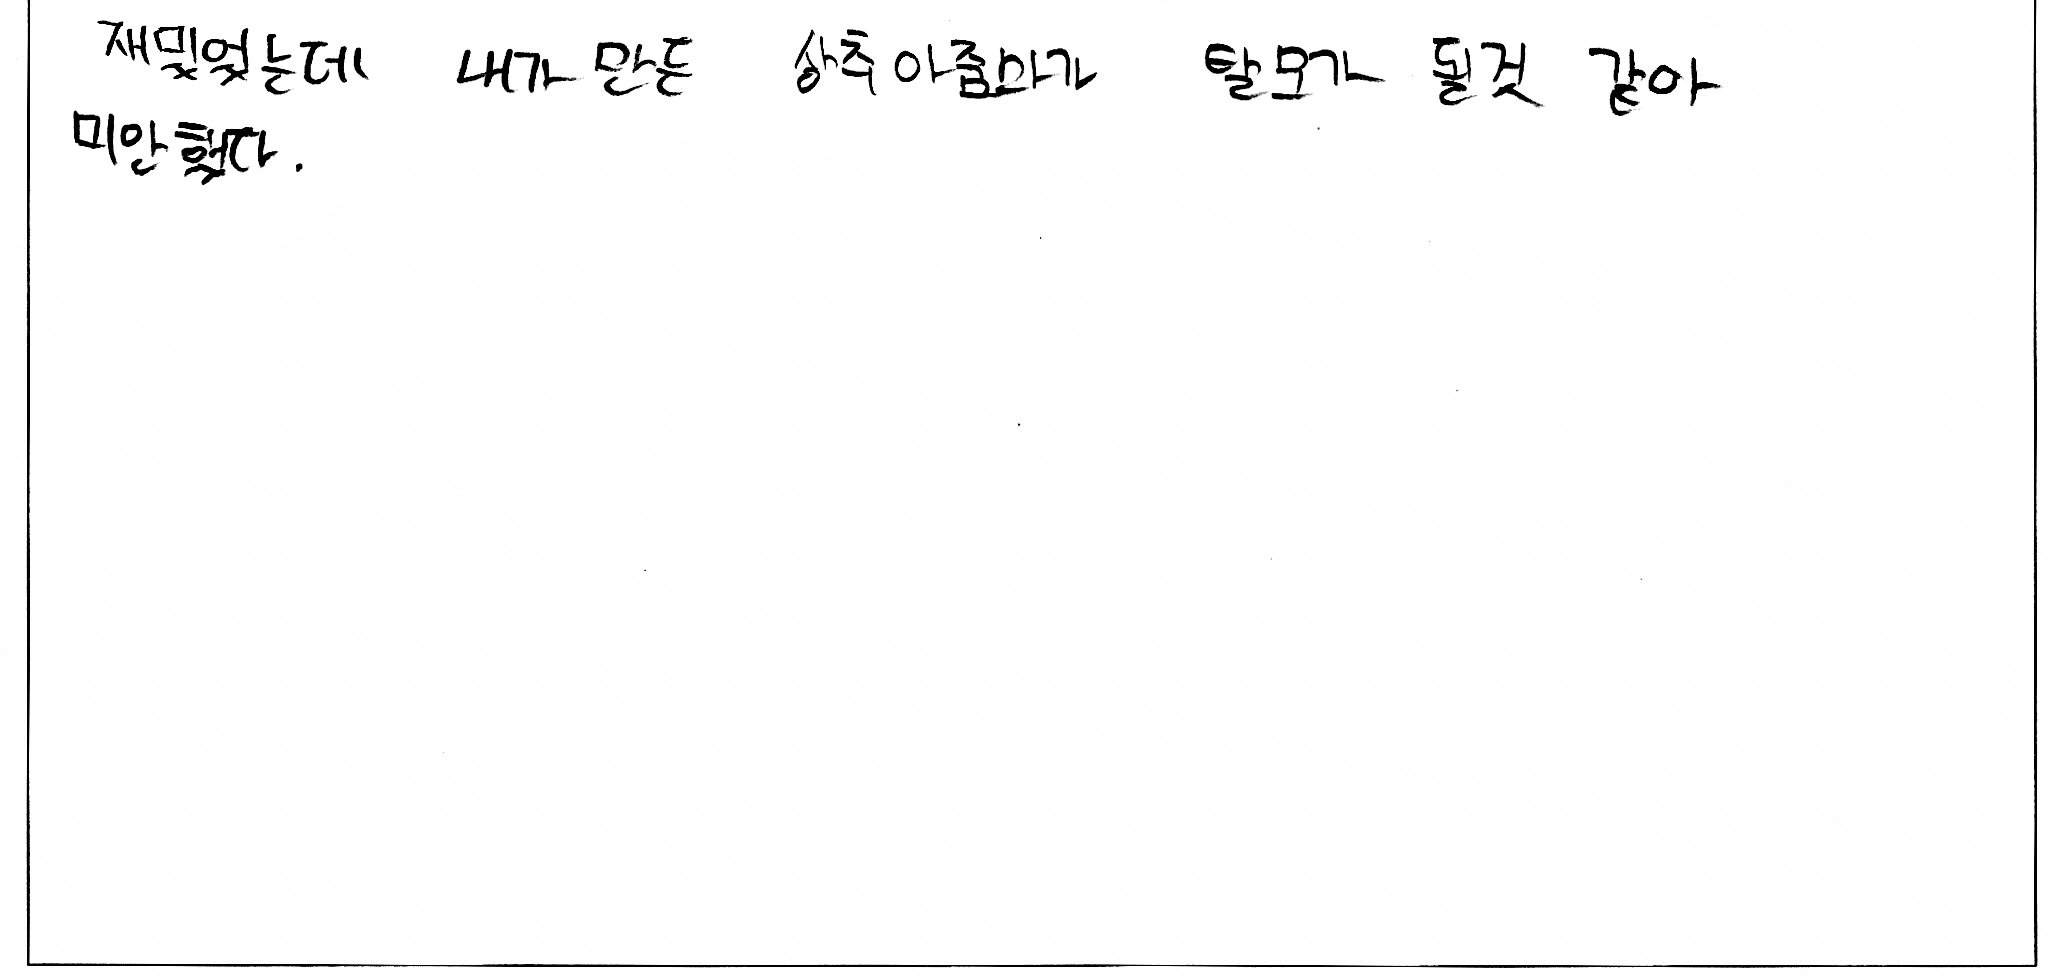 재밌었는데 내가 만든 상추 아줌마가 탈모가 될것 같아
미안했다.